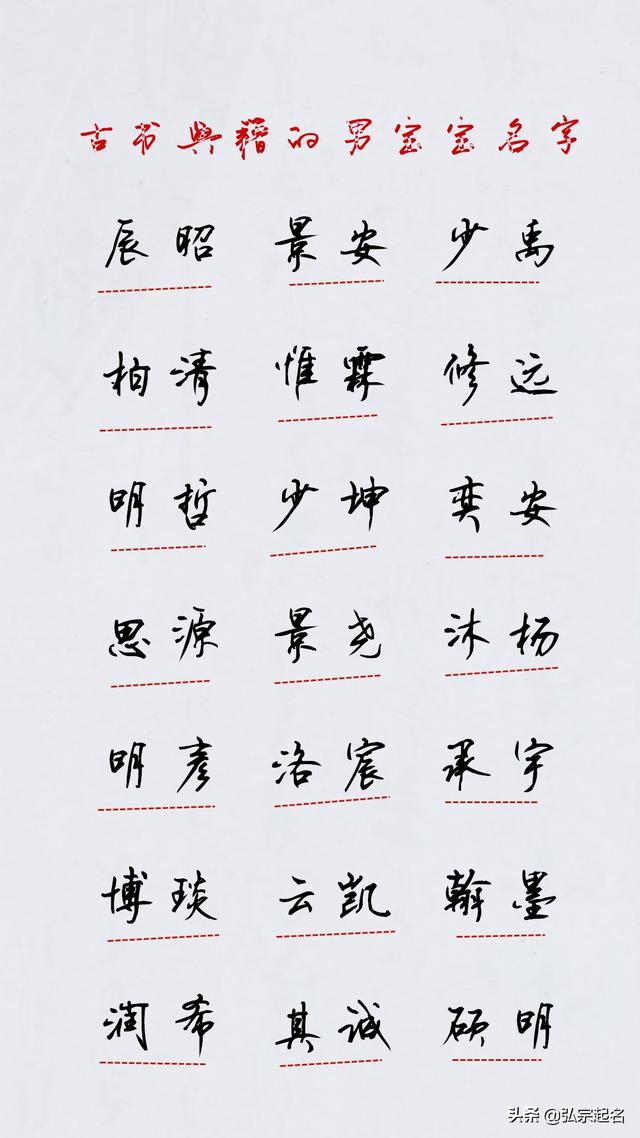 古书典籍的男宝宝名字
辰昭 景安 少禹
柏清 惟霖 修远
明哲 少坤 奕安
思源 景尧 沐杨
明彦 洛宸 承宇
博琰 云凯 翰墨
润希 其诚 硕明
头条 @弘宗起名